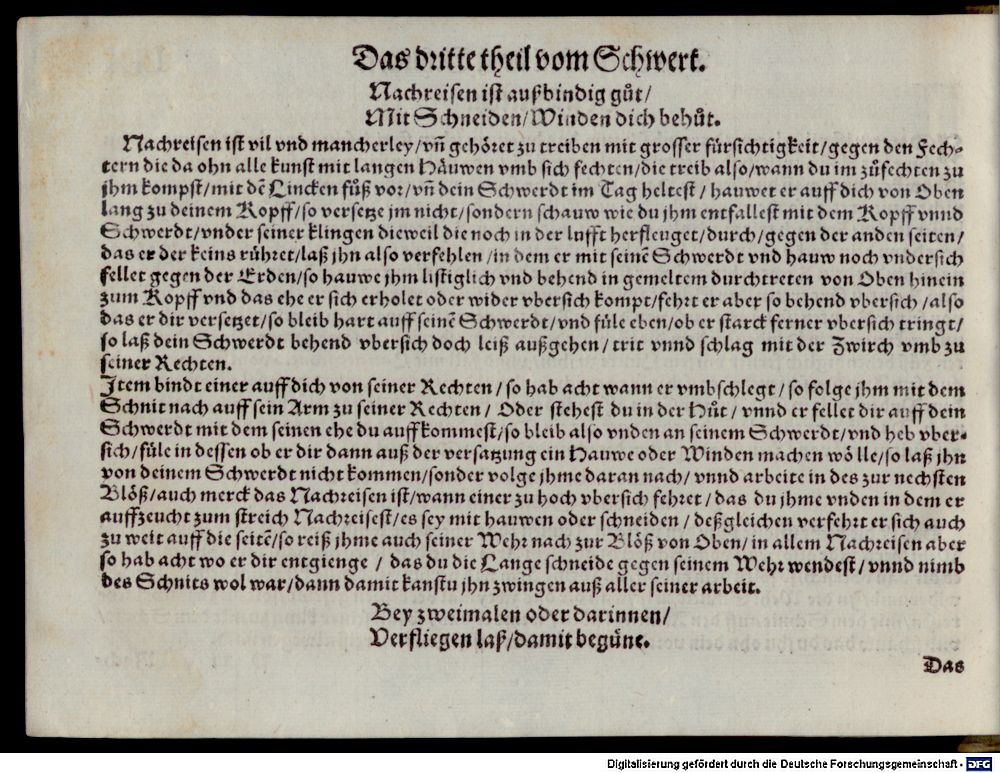 Das dritte theil vom Schwert.
Nachreisen ist außbindig gůt/
Mit Schneiden/Winden dich behůt.
Nachreisen ist vil vnd mancherley/vñ gehöret zu treiben mit grosser fürsichtigkeit/gegen den Fech⸗
tern die da ohn alle kunst mit langen Häuwen vmb sich fechten/die treib also/wann du im zůfechten zu
jhm kompst/mit dē Lincken fůß vor/vñ dein Schwerdt im Tag heltest/ hauwet er auff dich von Oben
lang zu deinem Kopff/so versetze jm nicht/sondern schauw wie du jhm entfallest mit dem Kopff vnnd
Schwerdt/vnder seiner klingen dieweil die noch in der lufft herfleuget/durch/gegen der anden seiten/
das er der keins rühret/laß jhn also verfehlen/in dem er mit seinē Schwerdt vnd hauw noch vndersich
fellet gegen der Erden/so hauwe jhm listiglich vnd behend in gemeltem durchtreten von Oben hinein
zum Kopff vnd das ehe er sich erholet oder wider vbersich kompt/fehrt er aber so behend vbersich/also
das er dir versetzet/so bleib hart auff seinē Schwerdt/vnd füle eben/ob er starck ferner vbersich tringt/
so laß dein Schwerdt behend vbersich doch leiß außgehen/trit vnnd schlag mit der Zwirch vmb zu
seiner Rechten.
Item bindt einer auff dich von seiner Rechten/so hab acht wann er vmbschlegt/so folge jhm mit dem
Schnit nach auff sein Arm zu seiner Rechten/ Oder stehest du in der Hůt/ vnnd er fellet dir auff dein
Schwerdt mit dem seinen ehe du auffkommest/so bleib also vnden an seinem Schwerdt/vnd heb vber⸗
sich/füle in dessen ob er dir dann auß der versatzung ein Hauwe oder Winden machen wölle/so laß jhn
von deinem Schwerdt nicht kommen/sonder volge jhme daran nach/ vnnd arbeite in des zur nechsten
Blöß/auch merck das Nachreisen ist/wann einer zu hoch vbersich fehret/das du jhme vnden in dem er
auffzeucht zum streich Nachreisest/es sey mit hauwen oder schneiden/deßgleichen verfehrt er sich auch
zu weit auff die seitē/so reiß jhme auch seiner Wehr nach zur Blöß von Oben/in allem Nachreisen aber
so hab acht wo er dir entgienge/ das du die Lange schneide gegen seinem Wehr wendest/vnnd nimb
des Schnits wol war/dann damit kanstu jhn zwingen auß aller seiner arbeit.
Bey zweimalen oder darinnen/
Verfliegen laß/damit begüne.
Das
Digitalisierung gefördert durch die Deutsche Forschungsgemeinschaft - DFG